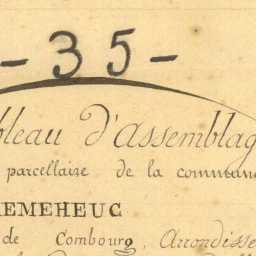 - 35 -
bleau d'assemblag
parcellaire de la commun
REMEHEUC
de Combourg, Arrondisse